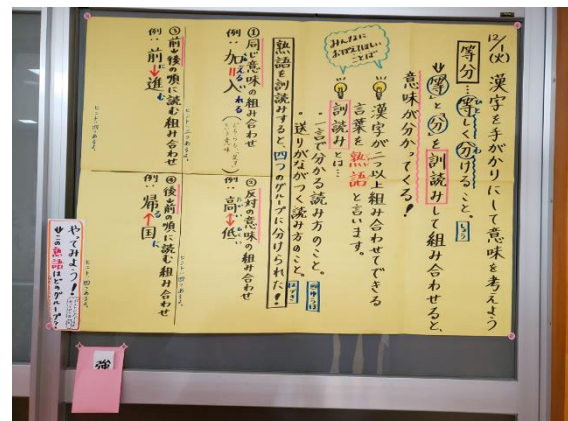 12/1(火) 漢字を手がかりにして意味を考えよう
等分…等しく分けること。
「等」と「分」を訓読みして組み合わせると、
意味が分かってくる！
みんなに
おぼえてほしい
ことば
漢字が二つ以上組み合わせてできる
言葉を熟語と言います。
訓読みとは…
・一言で分かる読み方のこと。
・送りがながつく読み方のこと。
熟語を訓読みすると、四つのグループに分けられた！
①同じ意味の組み合わせ
例：加入
②反対の意味の組み合わせ
例：高低
③前→後の順に読む組み合わせ
例：前進
④後→前の順に読む組み合わせ
例：帰国
やってみよう！
この熟語はどのグループ？
強